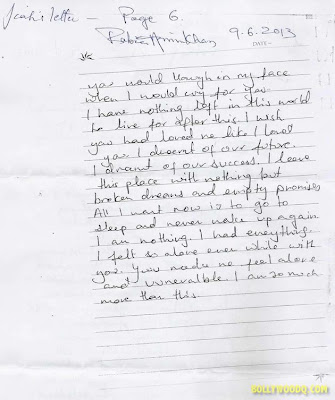 Jiah's letter - Page 6.
Rabia Amin Khan 9-6-2013
DATE-
you would laugh in my face
when I would cry for you
I have nothing left in this world
to live for after this I wish
you had loved me like I loved
you. I dreamt of our future.
I dreamt of our success. I leave
this place with nothing but
broken dreams and empty promises
All I want now is to go to
sleep and never wake up again
I am nothing. I had everything.
I felt so alone even while with
you. You made me feel alone
and vunerable. I am so much
more than this.
BOLLYWOODQ.COM